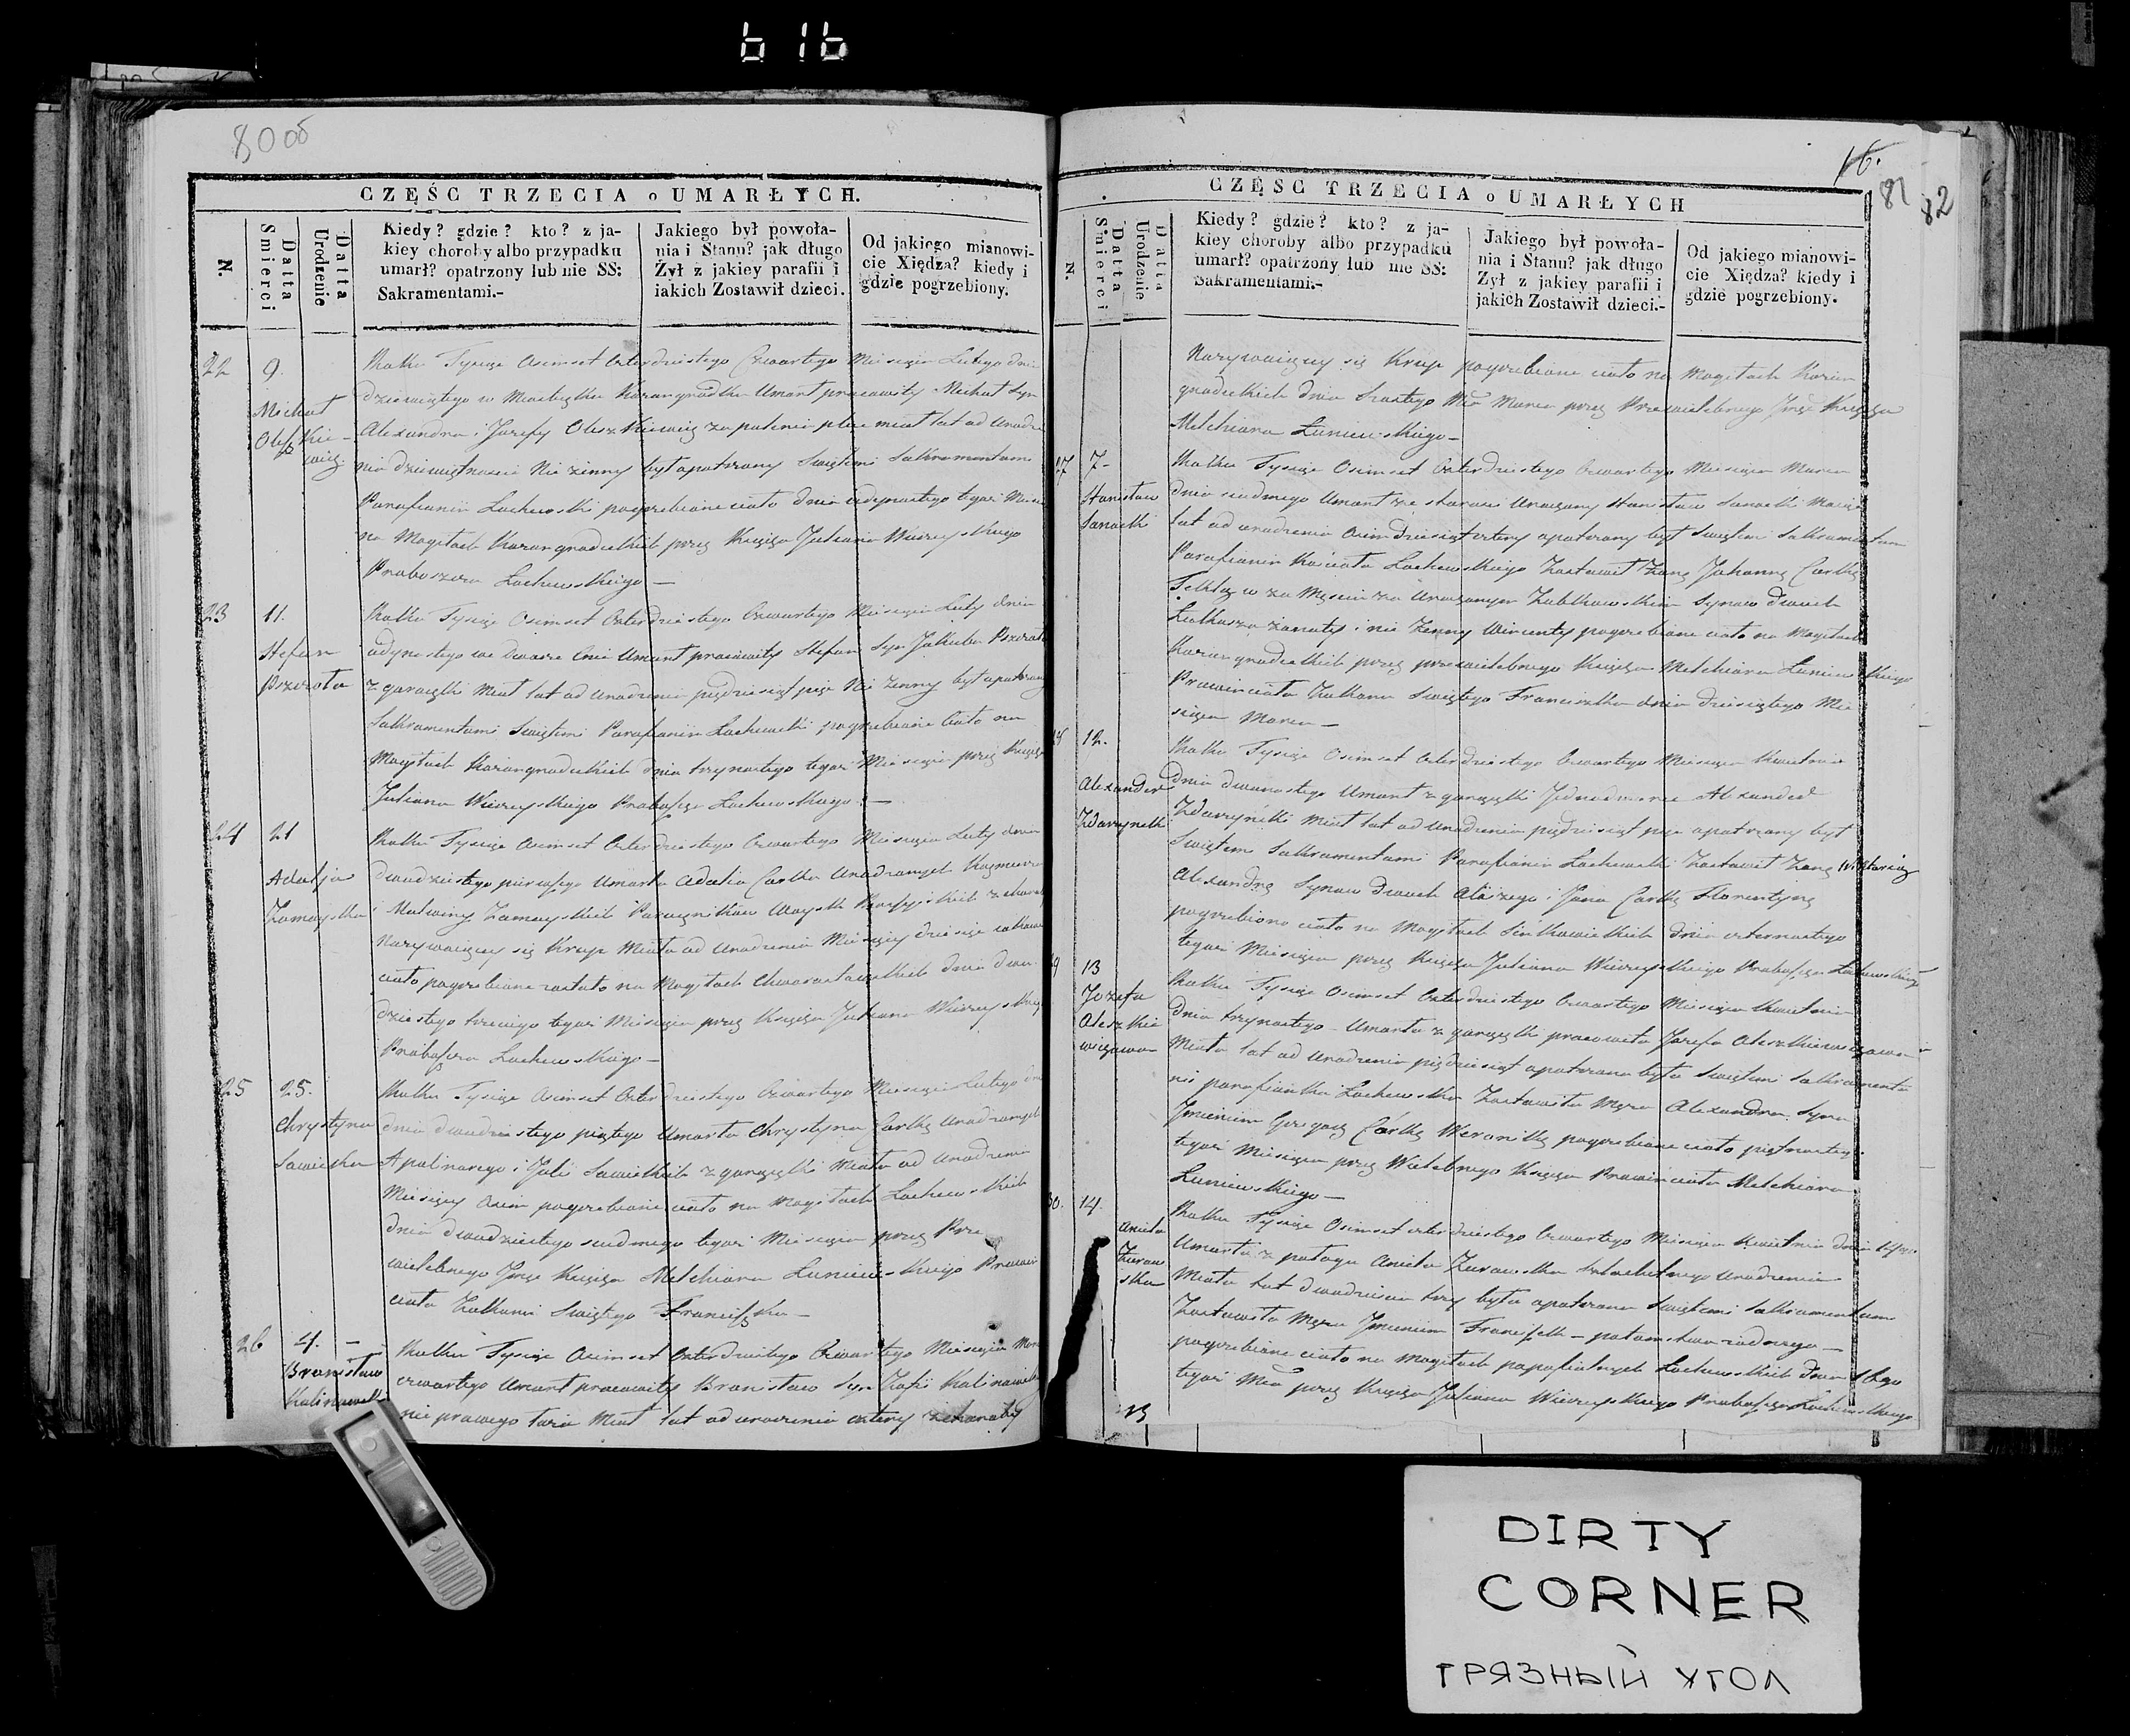 616
80 об
CZĘŚC TRZECIA o UMARŁYCH.
N.
Datta Smierci
Datta Urodzenie
Kiedy? gdzie? kto? z ja-
kiey choroby albo przypadku
umarł? opatrzony lub nie SS:
Sakramentami.-
Jakiego był powoła-
nia i Stanu? jak długo
Żył z jakiey parafii i
iakich Zostawił dzieci.
Od jakiego mianowi-
cie Xiędza? kiedy i
gdzie pogrzebiony.
22
9.
Michał
Olesz Kie-
wicz
Roku Tysiąc Osimset Czterdziestego Czwartego Miesiąca Lutego dnia
dziewiątego w Miasteczku Kożangródku Umarł pracowity Michał Syn
Alexandra i Jozefy Oleszkiewicz zapalenia płuc miał lat od Urodze
nia dziewiętnaście Nie żenny był opatrzony Swiętemi Sakramentami
Parafianin Łachewski pogrzebione ciało dnia iedynastego tegoż Miesia
na Mogiłach Kożangrodeckich przez Księdza Juliana Wierzyskiego
Proboszcza Łachewskiego —
23
11.
Stefan
Pszczoła
Roku Tysiąc Osimset Czterdziestego Czwartego Miesiąca Luty dnia
iedynastego we Dworze Umarł pracowity Stefan Syn Jakuba Pszczoła
z gorączki Miał lat od Urodzenia piędziesiąt pięć Nie żenny był opatrzony
Sakramentami Swiętemi Parafianin Łachewski pogrzebione Ciało na
Mogiłach Kożangrodeckich dnia trzynastego tegoż Miesiąca przez Księdza
Juliana Wierzyskiego Proboszcza Łachewskiego —
24
21
Adelja
Zamoyska
Roku Tysiąc Osimset Czterdziestego Czwartego Miesiąca Luty dnia
dwudziestego pierwszego Umarła Adelia Corka Urodzonych Kazmierza
i Malwiny Zamoyskich Poruczników Woysk Rossyjskich z choroby
Nazywaiącey się Krup Miała od Urodzenia Miesięcy dziesięć
ciało pogrzebione zostało na Mogiłach dnia dwu
dziestego trzeciego tegoż Miesiąca przez Księdza Juliana Wierzyskiego
Proboszcza Łachewskiego —
25
25.
Chrystyna
Sawicka
Roku Tysiąc Osimset Czterdziestego Czwartego Miesiąca Lutego
dnia dwudziestego piątego Umarła Chrystyna Corka Urodzonych
Apolinarego i Julii Sawickich z gorączki Miała od Urodzenia
Miesięcy Osim pogrzebione ciało na Mogiłach Łachewskich
dnia dwudziestego siudmego tegoż Miesiąca przez Prze
wielebnego Księdza Melchiora Łuniewskiego Prowin
ciała Zakonu Swiętego Franciszka —
26
4. —
Bronisław
Kalinowski
Roku Tysiąc Osimset Czterdziestego Czwartego Miesiąca Marca
czwartego Umarł pracowity Bronisław Syn Zofii Kalinowskiey
nie prawego łoża Miał lat od urodzenia cztery z choroby
16.
81
82
CZĘSC TRZECIA o UMARŁYCH
N.
Datta Smierci
Datta Urodzenie
Kiedy? gdzie? kto? z ja-
kiey choroby albo przypadku
umarł? opatrzony lub nie SS:
Sakramentami.-
Jakiego był powoła-
nia i Stanu? jak długo
Zył z jakiey parafii i
jakich Zostawił dzieci.-
Od jakiego mianowi-
cie Xiędza? kiedy i
gdzie pogrzebiony.
Nazywaiącey się Krup pogrzebione ciało na Mogiłach Kożan
grodeckich dnia Szostego Mca Marca przez Przewielebnego Księdza
Melchiora Łuniewskiego —
27
7-
Stanisław
Sanocki
Roku Tysiąc Osimset Czterdziestego Czwartego Miesiąca Marca
dnia siudmego Umarł ze starości Urodzony Stanisław Sanocki
lat od urodzenia Osimdziesiąt cztery opatrzony był Swiętemi Sakramentami
Parafianin Kościoła Łachewskiego Zostawił Żonę Johannę Corkę
Teklę w za Męściu za Urodzonym Zabłkowskim Synow dwuch
Łukasza żonaty i nie Żenny Wincenty pogrzebione ciało na Mogiłach
Kożangrodeckich przez przewielebnego Księdza Melchiora Łuniewskiego
Prowinciała Zakonu Swiętego Franciszka dnia dziesiątego Mie
siąca Marca —
28
12.
Alexander
Zdarzynski
Roku Tysiąc Osimset Czterdziestego Czwartego Miesiąca Kwietnia
dnia dwunastego Umarł z gorączki Jednodworzec Alexander
Zdarzyński Miał lat od Urodzenia piędziesiąt pięć opatrzony był
Swiętemi Sakramentami Parafianin Łachewski Zostawił Żonę Wiktorią
Alexandrę Synow dwuch Alojzego i Jana Corkę Florentynę
pogrzebiono ciało na Mogiłach Sinkiewickich dnia czternastego
tegoż Miesiąca przez Księdza Juliana Wierzyskiego Proboszcza Łachewskiego
29
13
Jozefa
Oleszkie
wiczowa
Roku Tysiąc Osimset Czterdziestego Czwartego Miesiąca Kwietnia
dnia trzynastego Umarła z gorączki pracowita Jozefa Oleszkiewiczowa
Miała lat od Urodzenia piędziesiąt opatrzona była Swiętemi Sakramenta
mi parafianka Łachewska Zostawiła Męża Alexandra Syna
Jmieniem Grzegorz Córkę Weronikę pogrzebione ciało piętnastego
tegoż Miesiąca przez Wielebnego Księdza Prowinciała Melchiora
Łuniewskiego —
30.
14.
Aniela
Żuraw
ska
Roku Tysiąc Osimset czterdziestego Czwartego Miesiąca Kwietnia dnia 14go
Umarła z połogu Aniela Żurawska Szlachetnego Urodzenia
Miała lat dwadzieścia trzy była opatrzona Swiętemi Sakramentami
Zostawiła Męża Jmieniem Franciszek — potomstwa żadnego —
pogrzebione ciało na Mogiłach parafialnych Łachewskich Dnia 16go
tegoż Mca przez Księdza Juliana Wierzyskiego Proboszcza Łachewskiego
DIRTY
CORNER
ГРЯЗНЫЙ УГОЛ